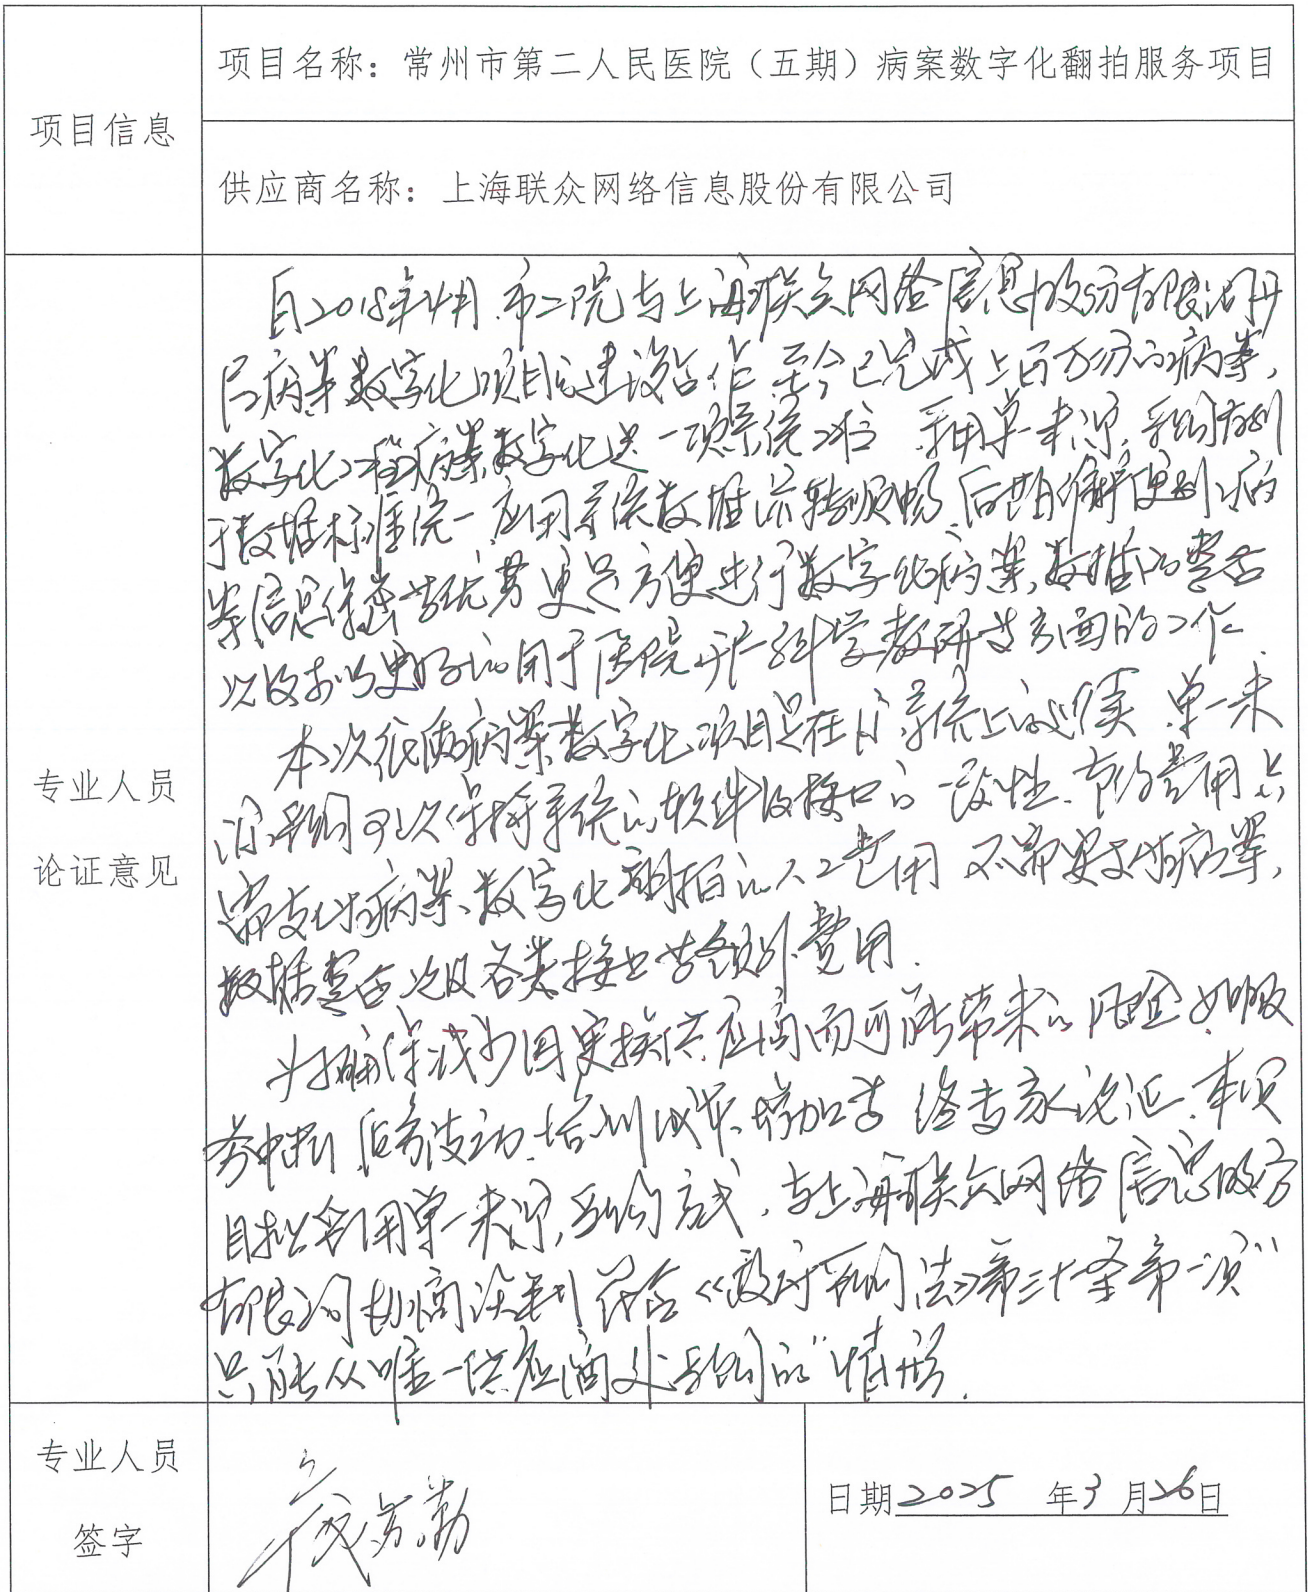 项目信息
项目名称：常州市第二人民医院（五期）病案数字化翻拍服务项目
供应商名称：上海联众网络信息股份有限公司
专业人员
论证意见
自2018年4月，市二院与上海联众网络信息股份有限公司开
展病案数字化项目建设合作 至今已完成上百万份的病案，
数字化工程病案数字化是一项系统工程 采用单一来源采购有利
于数据标准统一 应用系统数据流转顺畅，后期维护便利，病
案信息保密性统筹 更是方便进行数字化病案，数据的整合
以及更好的用于医院开展科学教研等方面的工作。
本次纸质病案数字化项目是在旧系统上的延续 单一来
源采购可以保持系统的软件及接口的一致性，节约费用 只
需支付病案数字化翻拍的人工费用 不需要支付病案，
数据整合以及各类接口等额外费用。
为确保减少因更换供应商而可能带来的风险 如服
务中断，服务波动，培训成本增加等 经专家论证，本项
目拟采用单一来源采购方式，与上海联众网络信息股份
有限公司协商谈判 符合《政府采购法》第三十一条第一项“
只能从唯一供应商处采购的”情形。
专业人员
签字
日期2025 年3 月26日